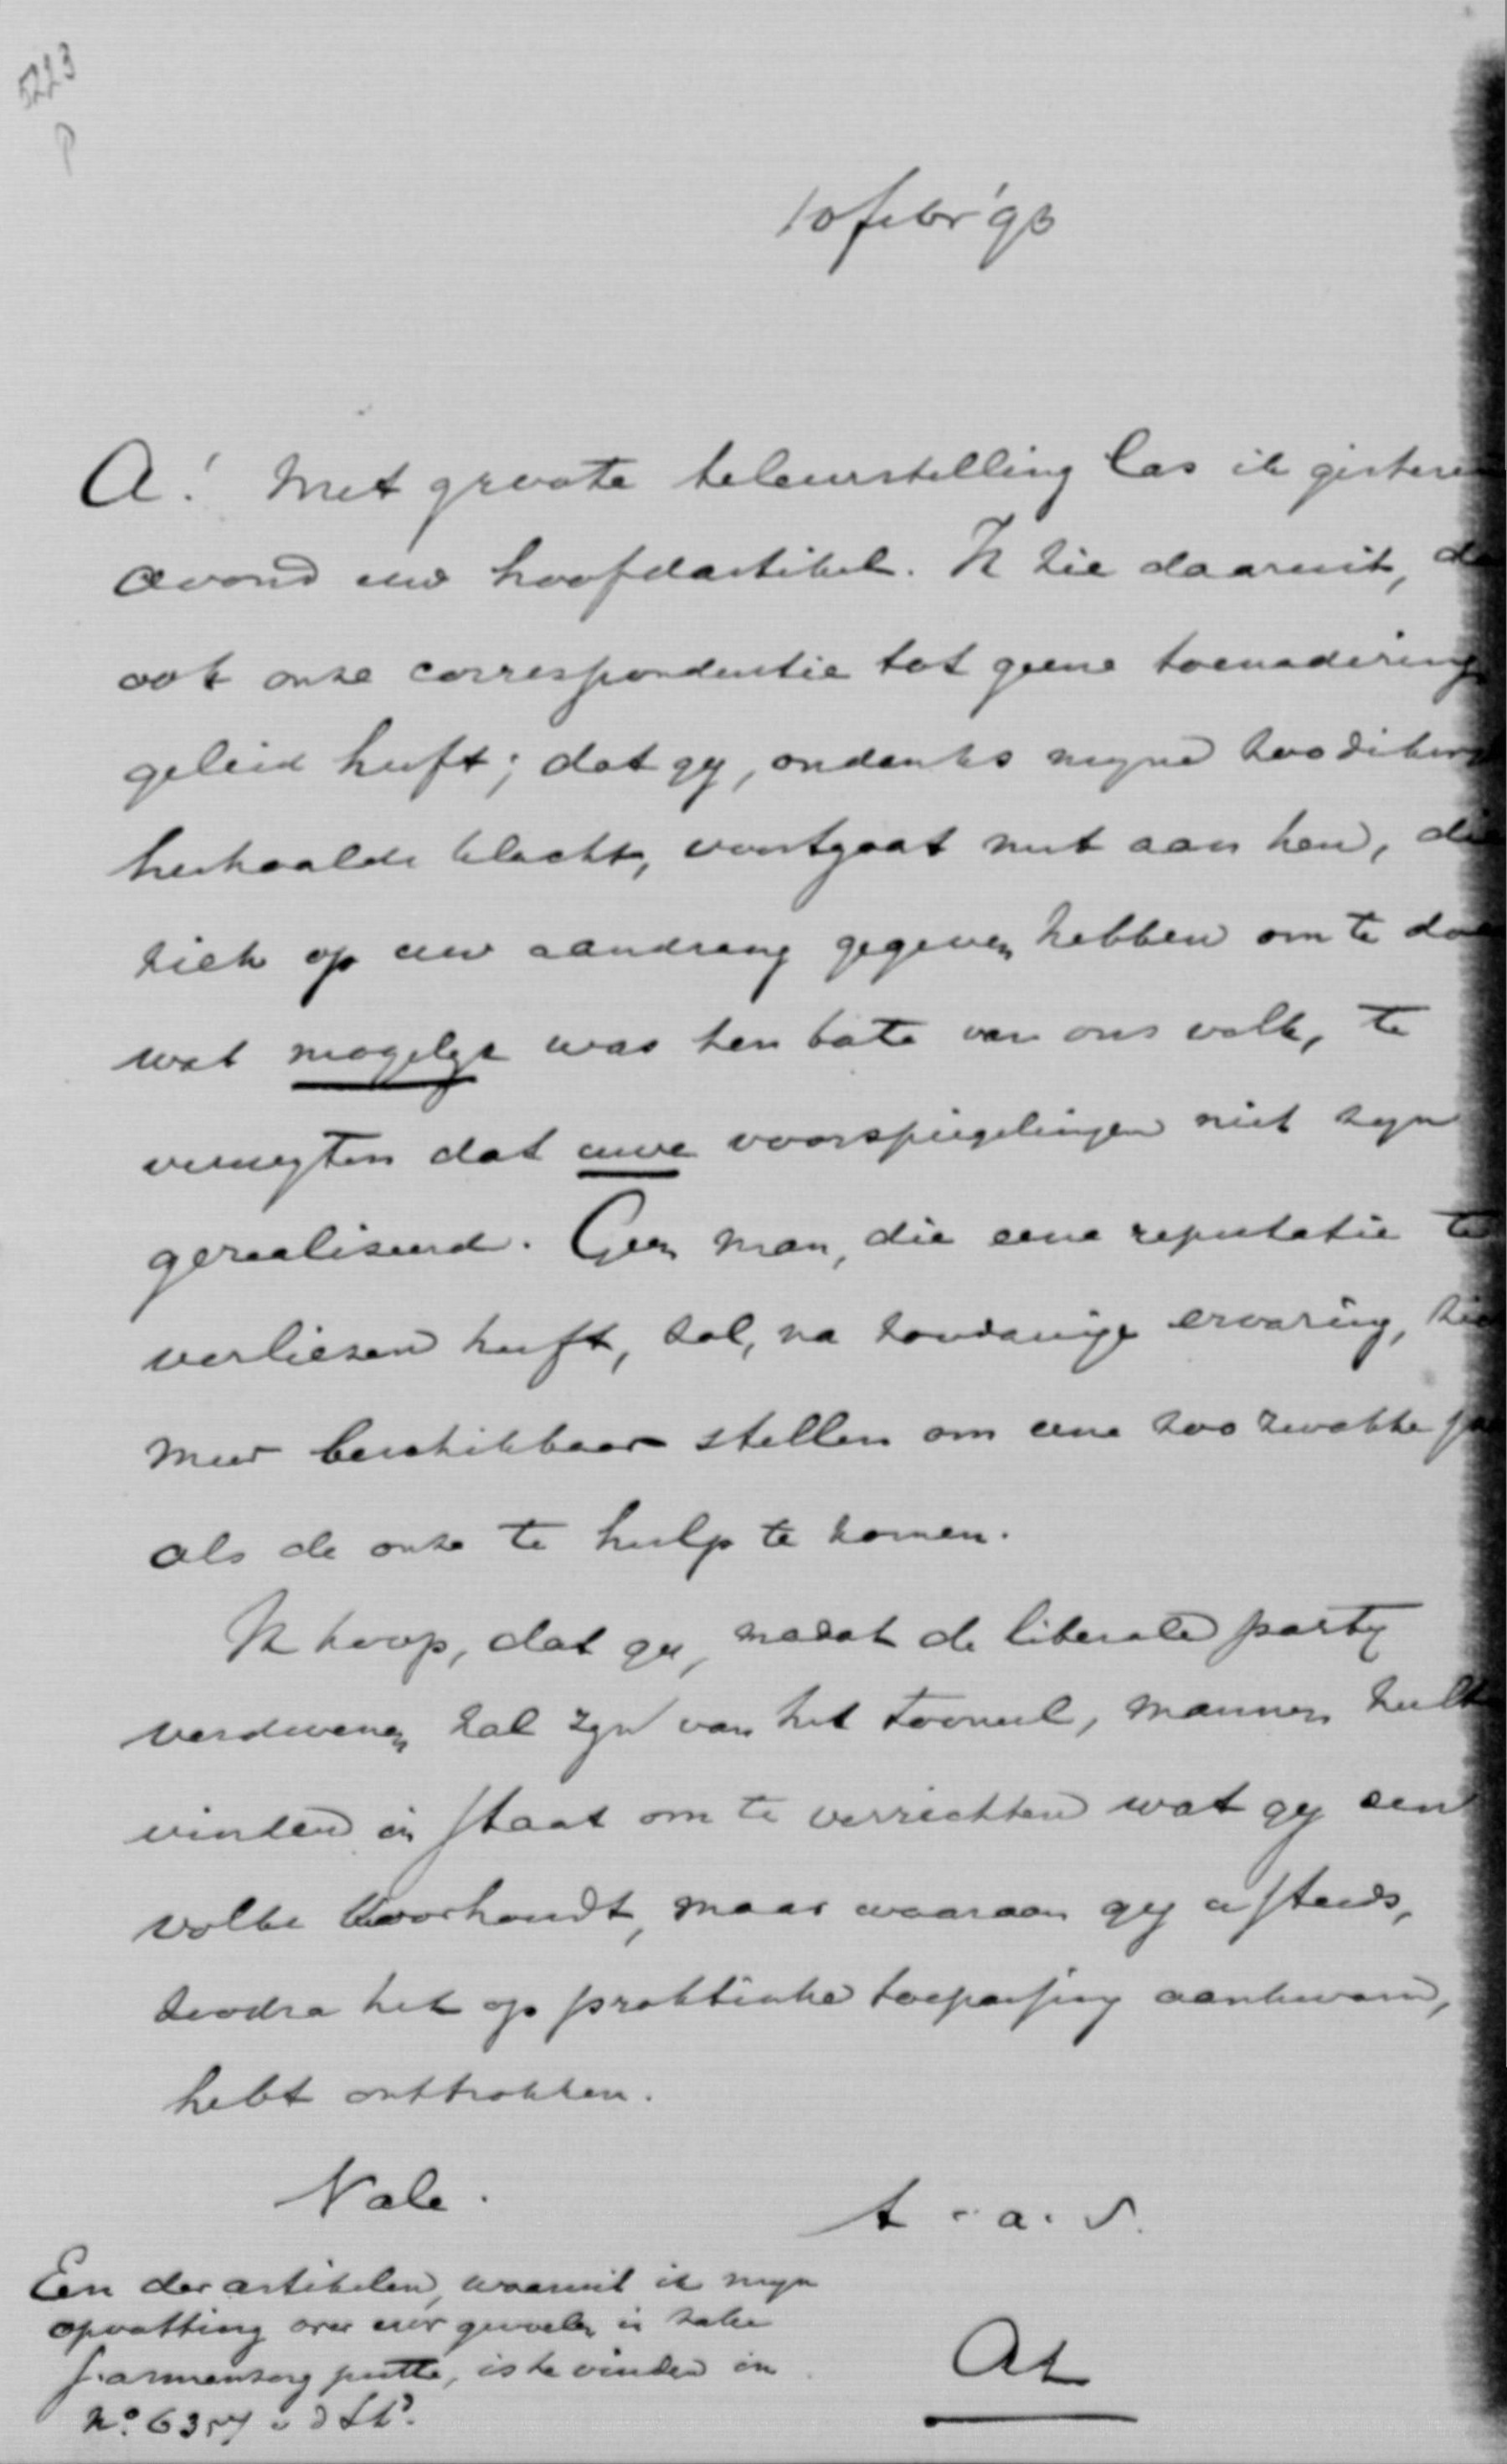 5223
P
10 febr '93
A! Met groote teleurstelling las ik gisteren
avond uw hoofdartikel. Ik zie daaruit, da
ook onze correspondentie tot geene toenadering
geleid heeft; dat gy, ondanks myne zoo dikwyls
herhaalde klacht, voortgaat met aan hen, die
zich op uw aandrang gegeven hebben om te doe
wat mogelyk was ten bate van ons volk, te
verwyten dat uwe voorspiegelingen niet zyn
gerealiseerd. Geen man, die eene reputatie te
verliezen heeft, zal, na zoodanige ervaring, zic
meer beschikbaar stellen om eene zoo zwakke pa
als de onze te hulp te komen.
Ik hoop, dat gy, nadat de liberale party
verdwenen zal zyn van het tooneel, mannen zult
vinden in staat om te verrichten wat gy een
volke voorhoudt, maar waaraan gy u steeds,
zoodra het op praktische toepassing aankwam,
hebt onttrokken.
Vale.
t. a. v.
Een der artikelen, waaruit ik myn
opvatting over uw gevoelen in zake
armenzorg putte, is te vinden in
No. 6357 v d St.d